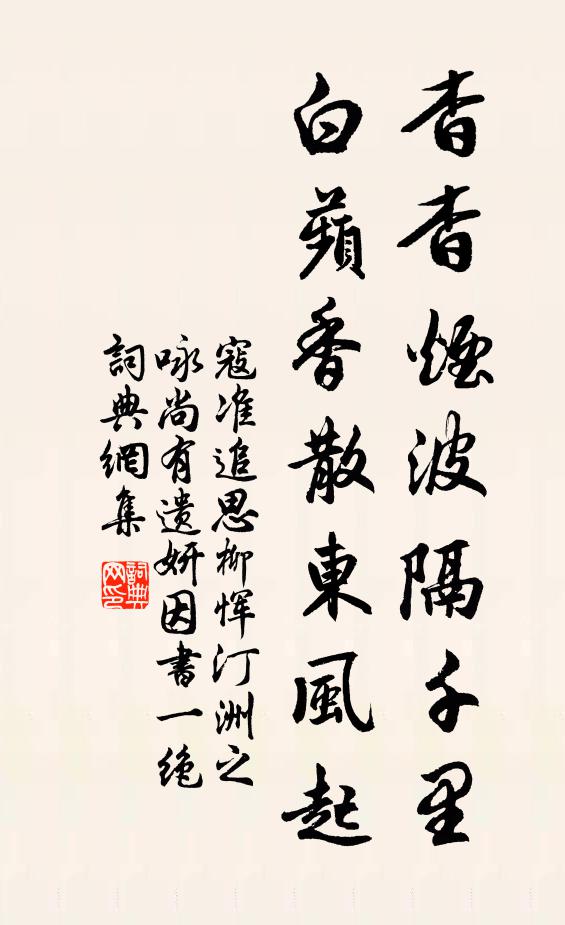 杳杳煙波隔千里
白蘋香散東風起
寇准追思柳恽汀洲之
咏尚有遗妍因書一绝
詞典網集
詞典网印